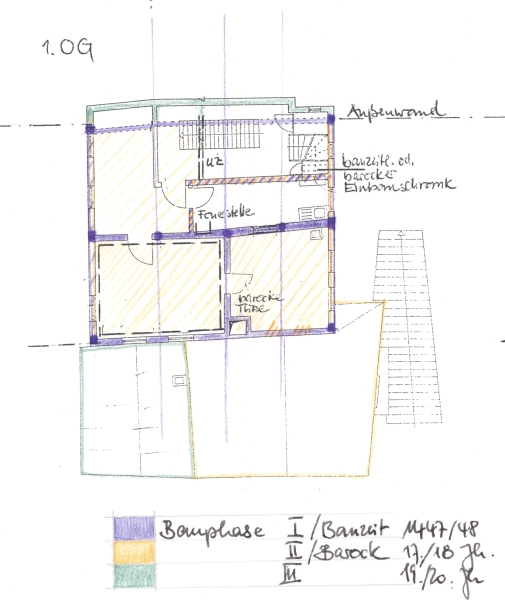 1.OG
Außenwand
bauzeitl. od.
barocker
Einbauschrank
UZ
Feuerstelle
barocke
Türe
Bauphase I / Bauzeit 1447/48
II / Barock 17./18 Jh.
III 19./20. Jh